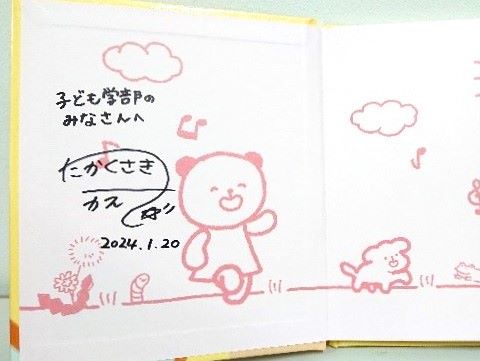 子ども学部の
みなさんへ
たかくさき
カズ
2024.1.20